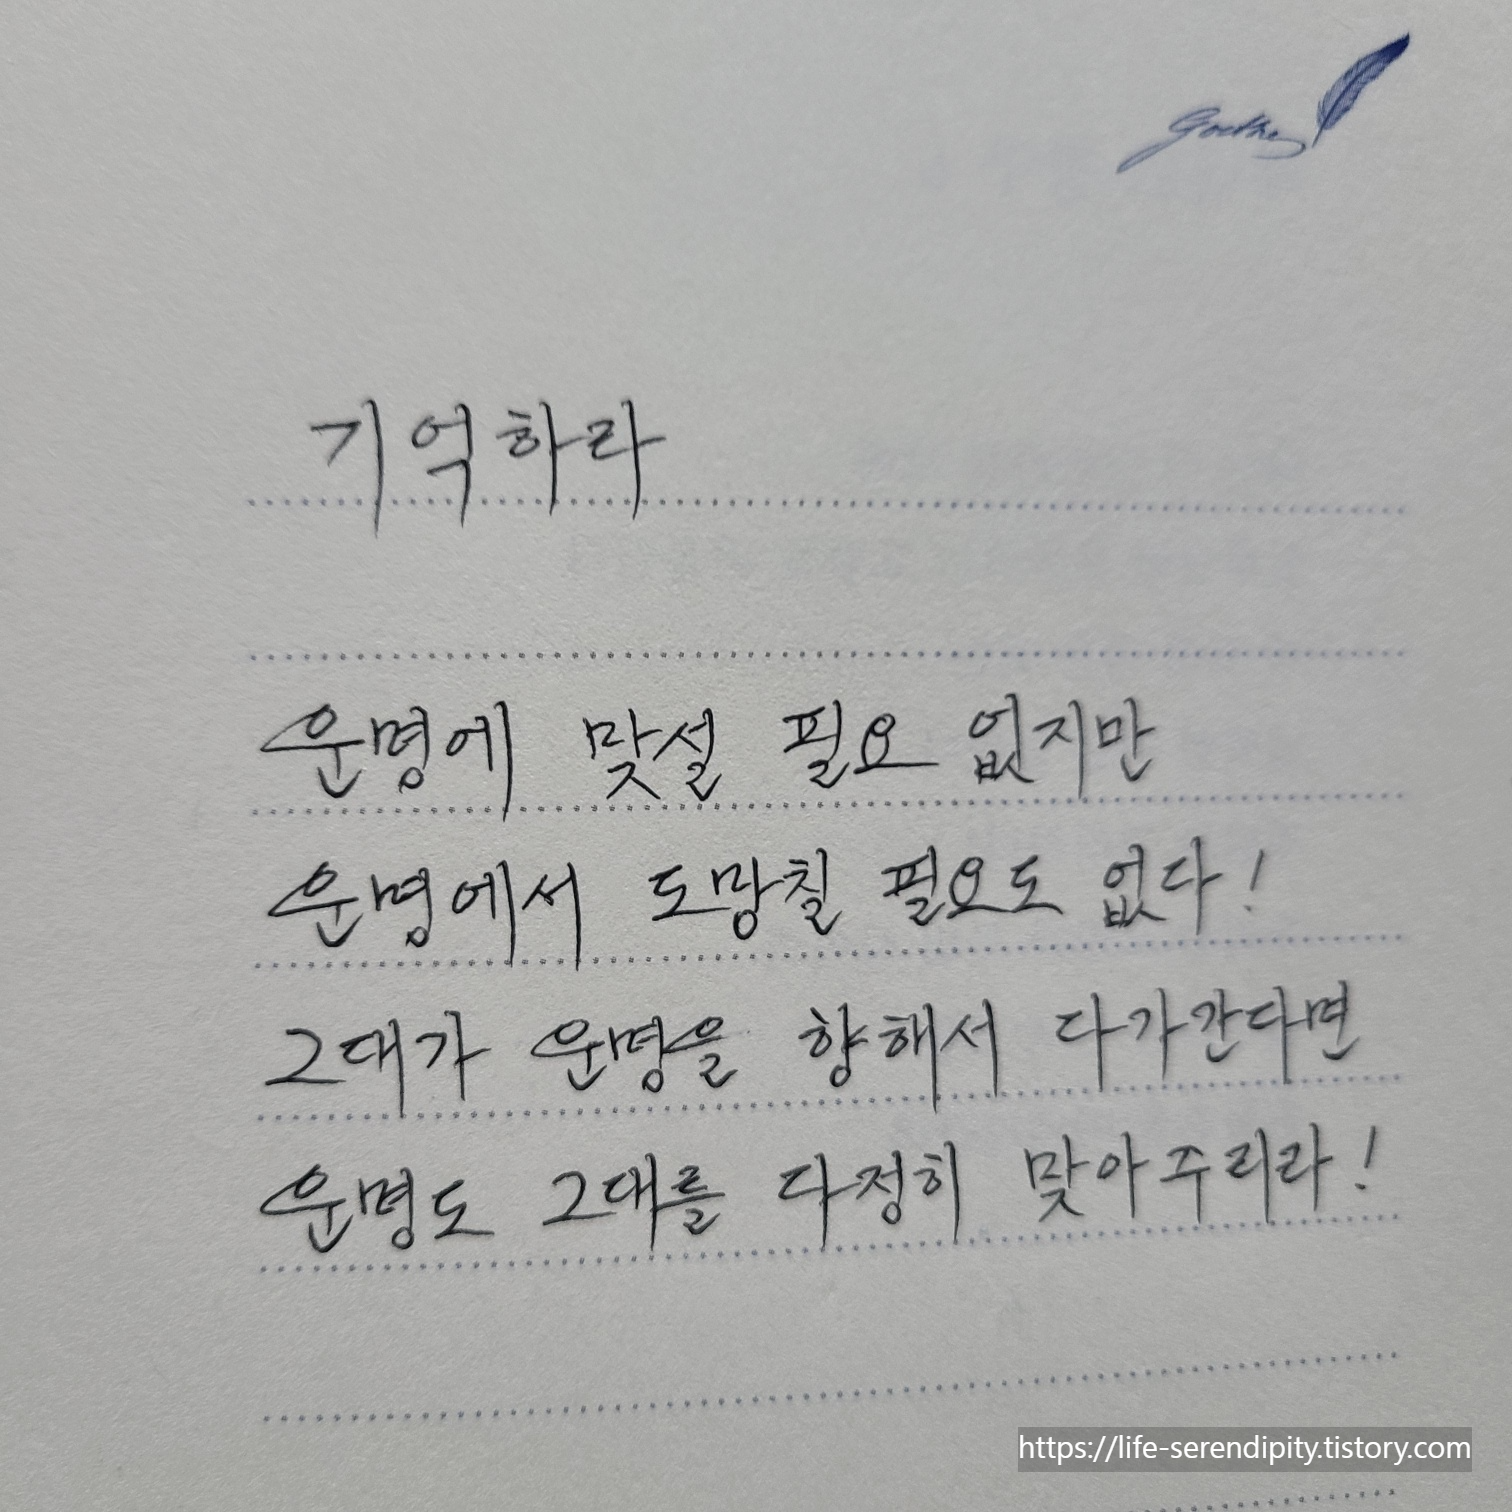 Goethe
기억하라
운명에 맞설 필요 없지만
운명에서 도망칠 필요도 없다!
그대가 운명을 향해서 다가간다면
운명도 그대를 다정히 맞아주리라!
https://life-serendipity.tistory.com